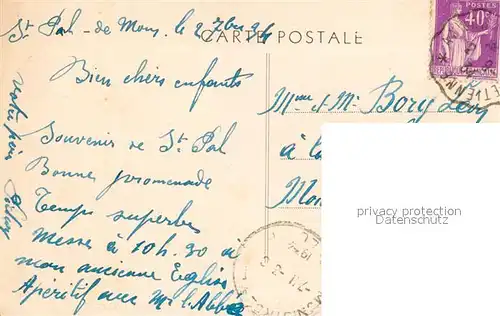 St Pal - de Mons, le 2 7bre 34
CARTE POSTALE
POSTES
40c
Bien chers enfants
Mme et Mr Bory
à la
Souvenir de St Pal
Bonne promenade
Temps superbe
Messe à 10h. 30 à
mon ancienne Eglise
Apéritif avec Mr l'Abbé
votre père
privacy protection
Datenschutz